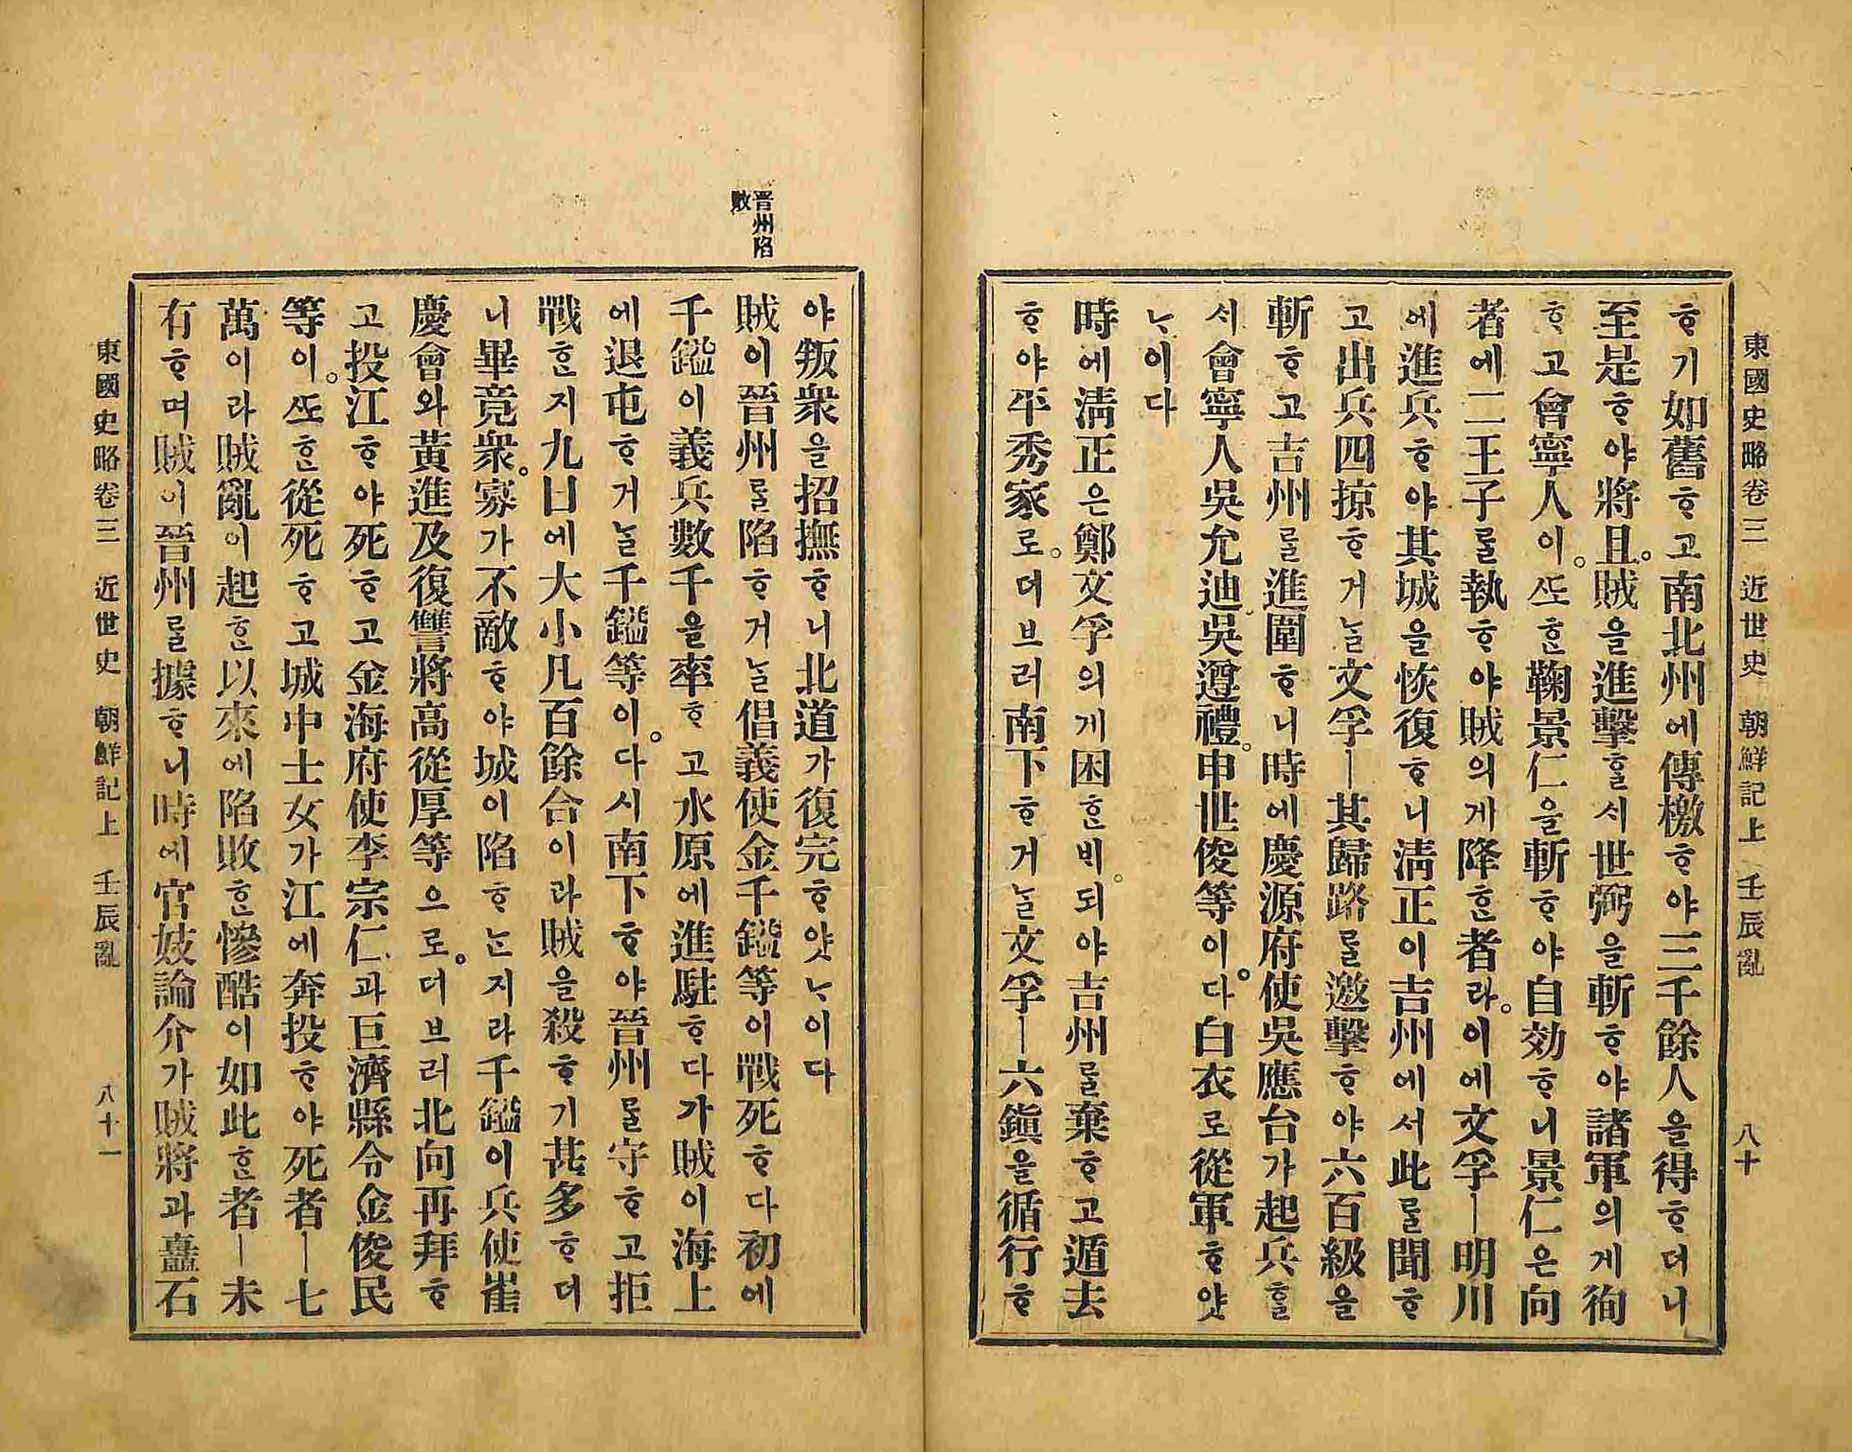 東國史略卷三 近世史 朝鮮記上 壬辰亂 八十
ᄒᆞ기如舊ᄒᆞ고南北州에傳檄ᄒᆞ야三千餘人을得ᄒᆞ더니
至是ᄒᆞ야將且。賊을進擊ᄒᆞᆯᄉᆡ世弼을斬ᄒᆞ야諸軍의게徇
ᄒᆞ고會寧人이。ᄯᅩᄒᆞᆫ鞠景仁을斬ᄒᆞ야自効ᄒᆞ니景仁은向
者에二王子ᄅᆞᆯ執ᄒᆞ야賊의게降ᄒᆞᆫ者라。이에文孚ㅣ明川
에進兵ᄒᆞ야其城을恢復ᄒᆞ니淸正이吉州에서此ᄅᆞᆯ聞ᄒᆞ
고出兵四掠ᄒᆞ거ᄂᆞᆯ文孚ㅣ其歸路ᄅᆞᆯ邀擊ᄒᆞ야六百級을
斬ᄒᆞ고吉州ᄅᆞᆯ進圍ᄒᆞ니時에慶源府使吳應台가起兵ᄒᆞᆯ
ᄉᆡ會寧人吳允迪吳遵禮。申世俊等이。다白衣로從軍ᄒᆞ얏
ᄂᆞ이다
時에淸正은鄭文孚의게困ᄒᆞᆫᄇᆡ。되야吉州ᄅᆞᆯ棄ᄒᆞ고遁去
ᄒᆞ야平秀家로。더브러南下ᄒᆞ거ᄂᆞᆯ文孚ㅣ六鎭을循行ᄒᆞ
晋州陷
敗
야叛衆을招撫ᄒᆞ니北道가復完ᄒᆞ얏ᄂᆞ이다
賊이晉州ᄅᆞᆯ陷ᄒᆞ거ᄂᆞᆯ倡義使金千鎰等이戰死ᄒᆞ다初에
千鎰이義兵數千을率ᄒᆞ고水原에進駐ᄒᆞ다가賊이海上
에退屯ᄒᆞ거ᄂᆞᆯ千鎰等이。다시南下ᄒᆞ야晉州ᄅᆞᆯ守ᄒᆞ고拒
戰ᄒᆞᆫ지九日에大小凡百餘合이라賊을殺ᄒᆞ기甚多ᄒᆞ더
니畢竟衆。寡가不敵ᄒᆞ야城이陷ᄒᆞᄂᆞᆫ지라千鎰이兵使崔
慶會와黃進及復讐將高從厚等으로。더브러北向再拜ᄒᆞ
고投江ᄒᆞ야死ᄒᆞ고金海府使李宗仁과巨濟縣令金俊民
等이。ᄯᅩᄒᆞᆫ從死ᄒᆞ고城中士女가江에奔投ᄒᆞ야死者ㅣ七
萬이라賊亂이起ᄒᆞᆫ以來에陷敗ᄒᆞᆫ慘酷이如此ᄒᆞᆫ者ㅣ未
有ᄒᆞ며賊이晉州ᄅᆞᆯ據ᄒᆞ니時에官妓論介가賊將과矗石
東國史略卷三 近世史 朝鮮記上 壬辰亂 八十一